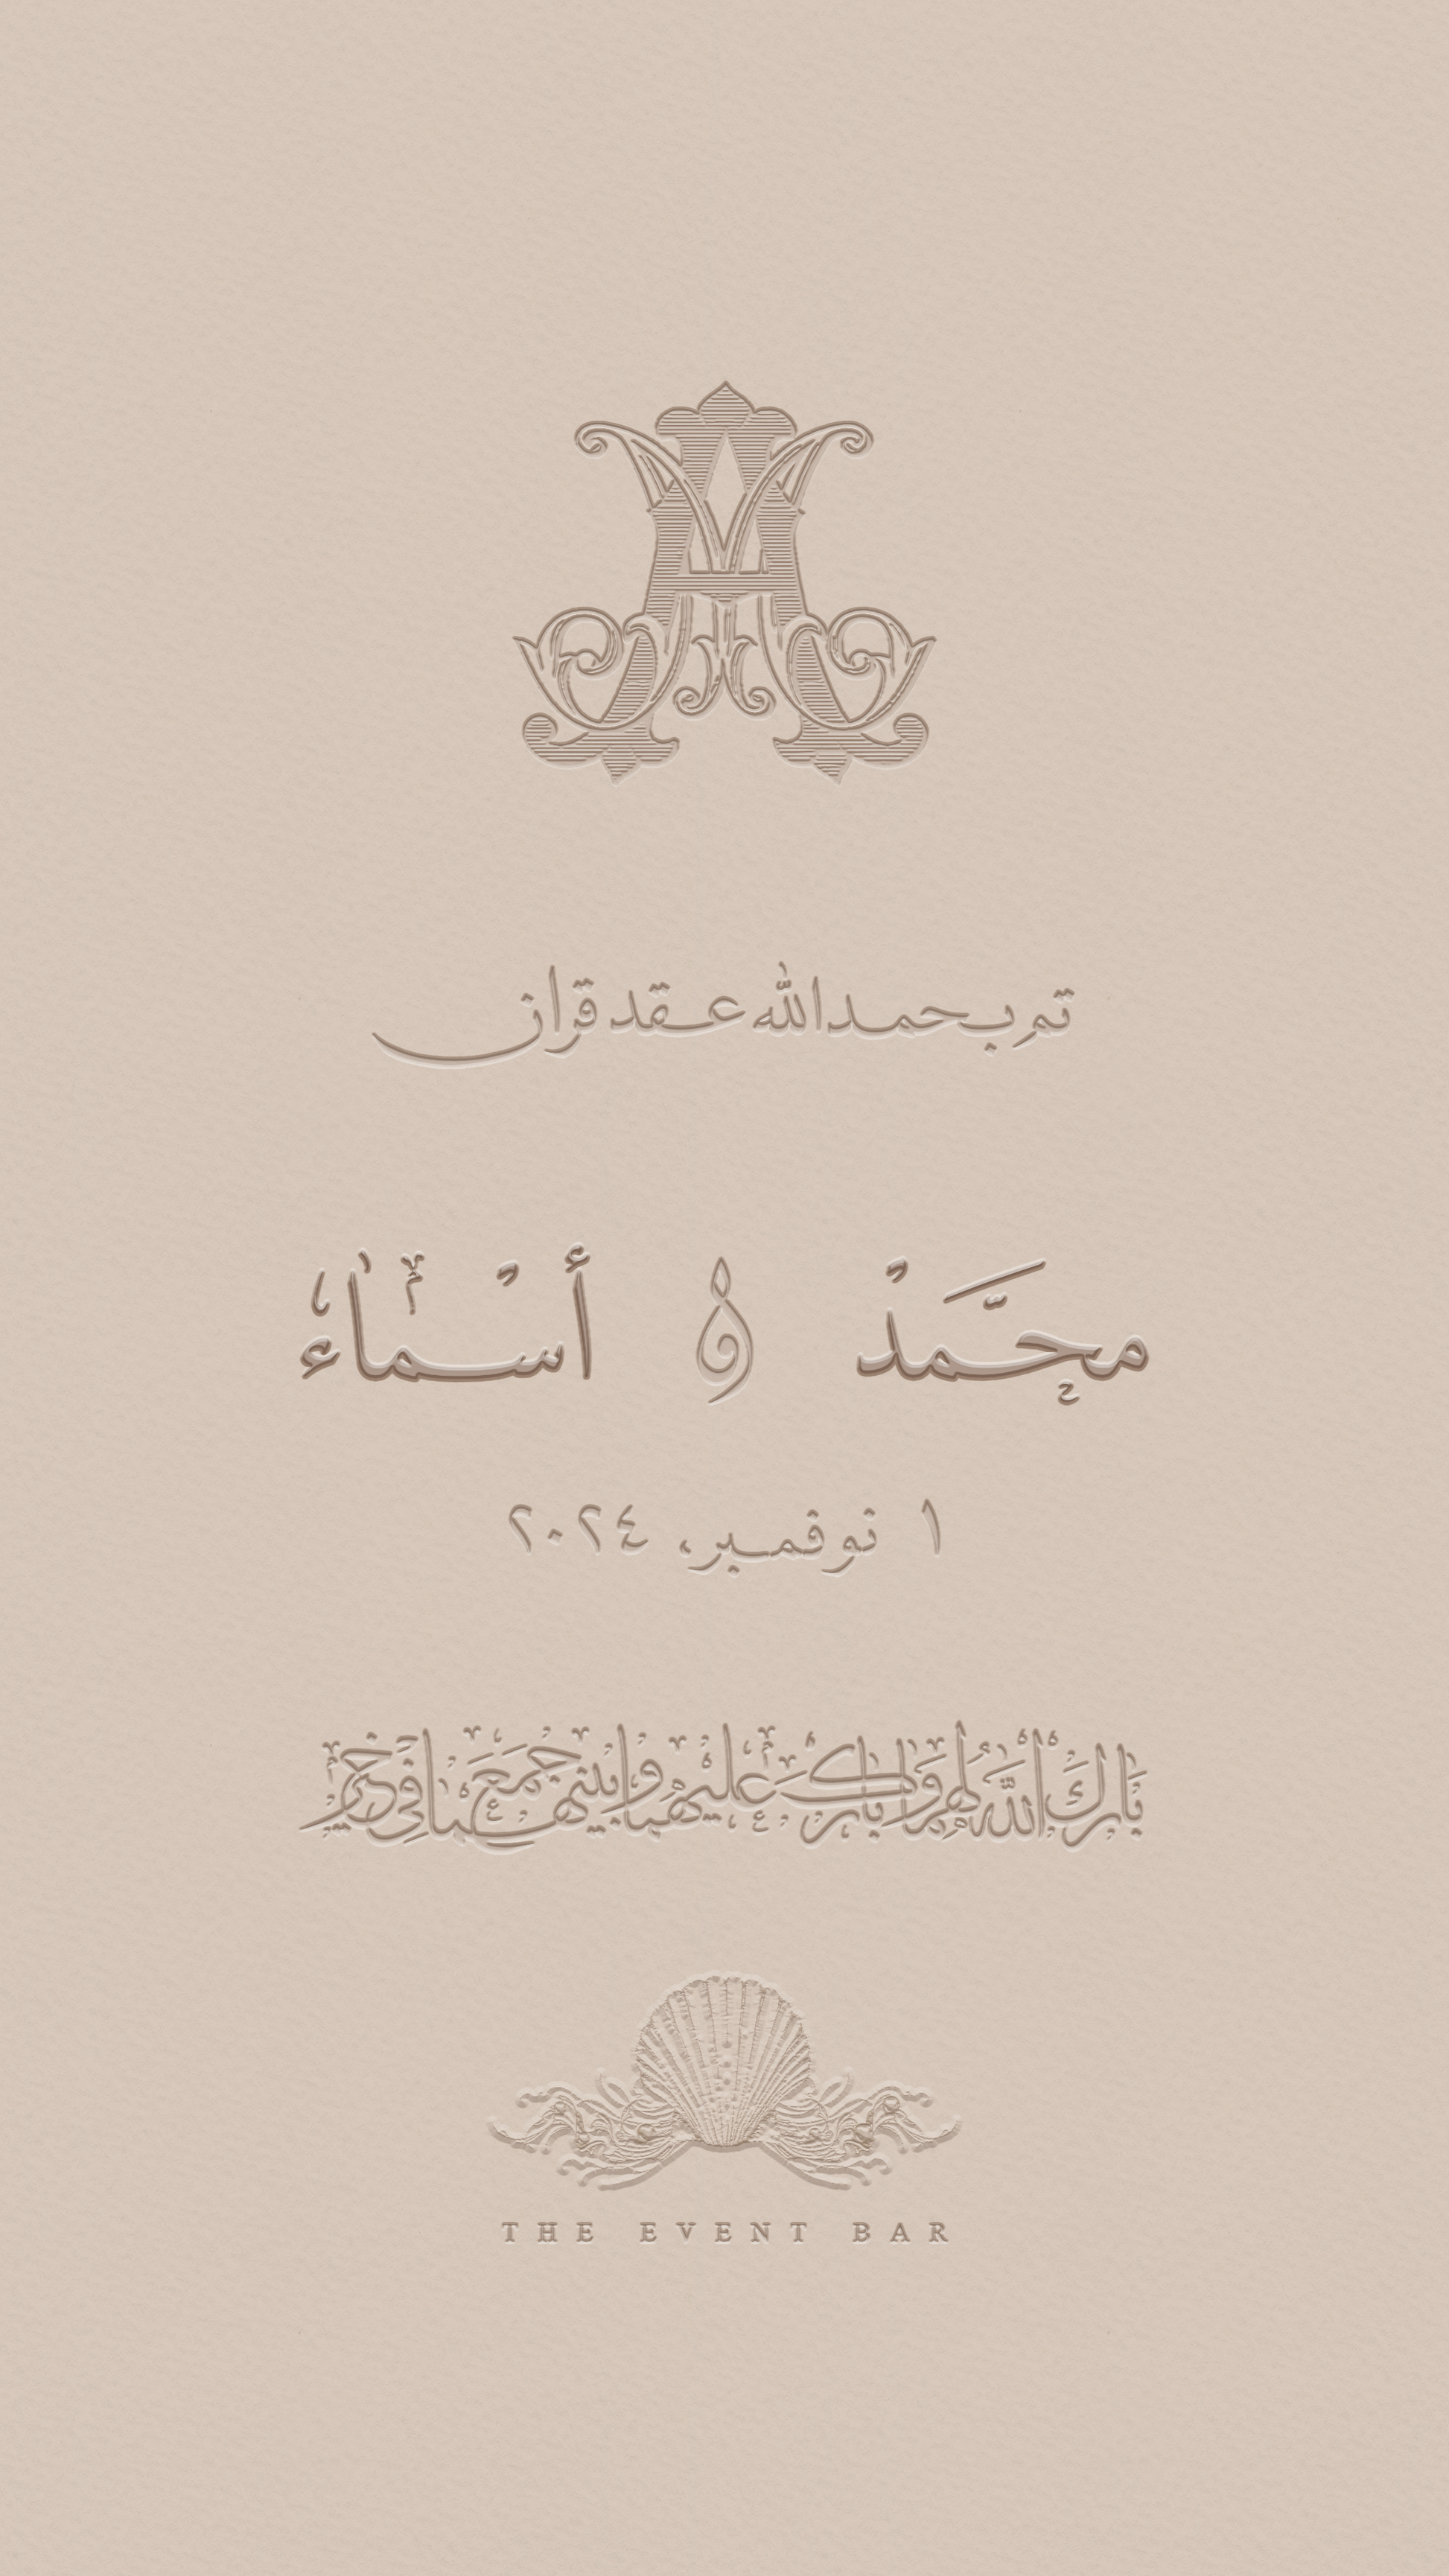 تم بحمد الله عقد قران
محمَّدْ و أسْماء
١ نوفمبر، ٢٠٢٤
بَارَكَ اللَّهُ لهم وَبارك عَليهما وجَمَعَ بينهما في خير
THE EVENT BAR